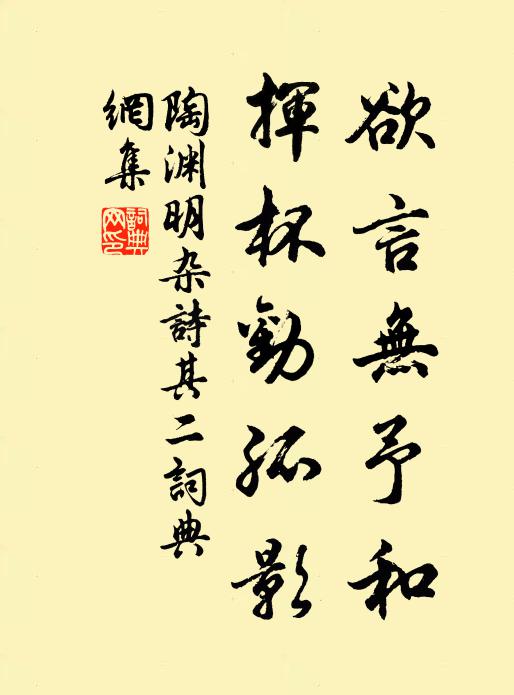 欲言無予和
揮杯勸孤影
陶渊明杂詩其二詞典
網集
詞典
网印